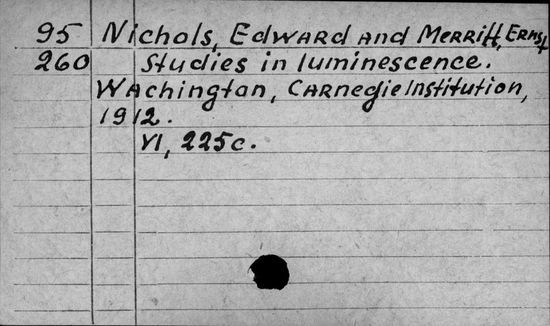 95 Nichols, Edward and Merritt, Ernst
260 Studies in luminescence.
Wachington, Carnegie Institution,
1912.
VI, 225c.